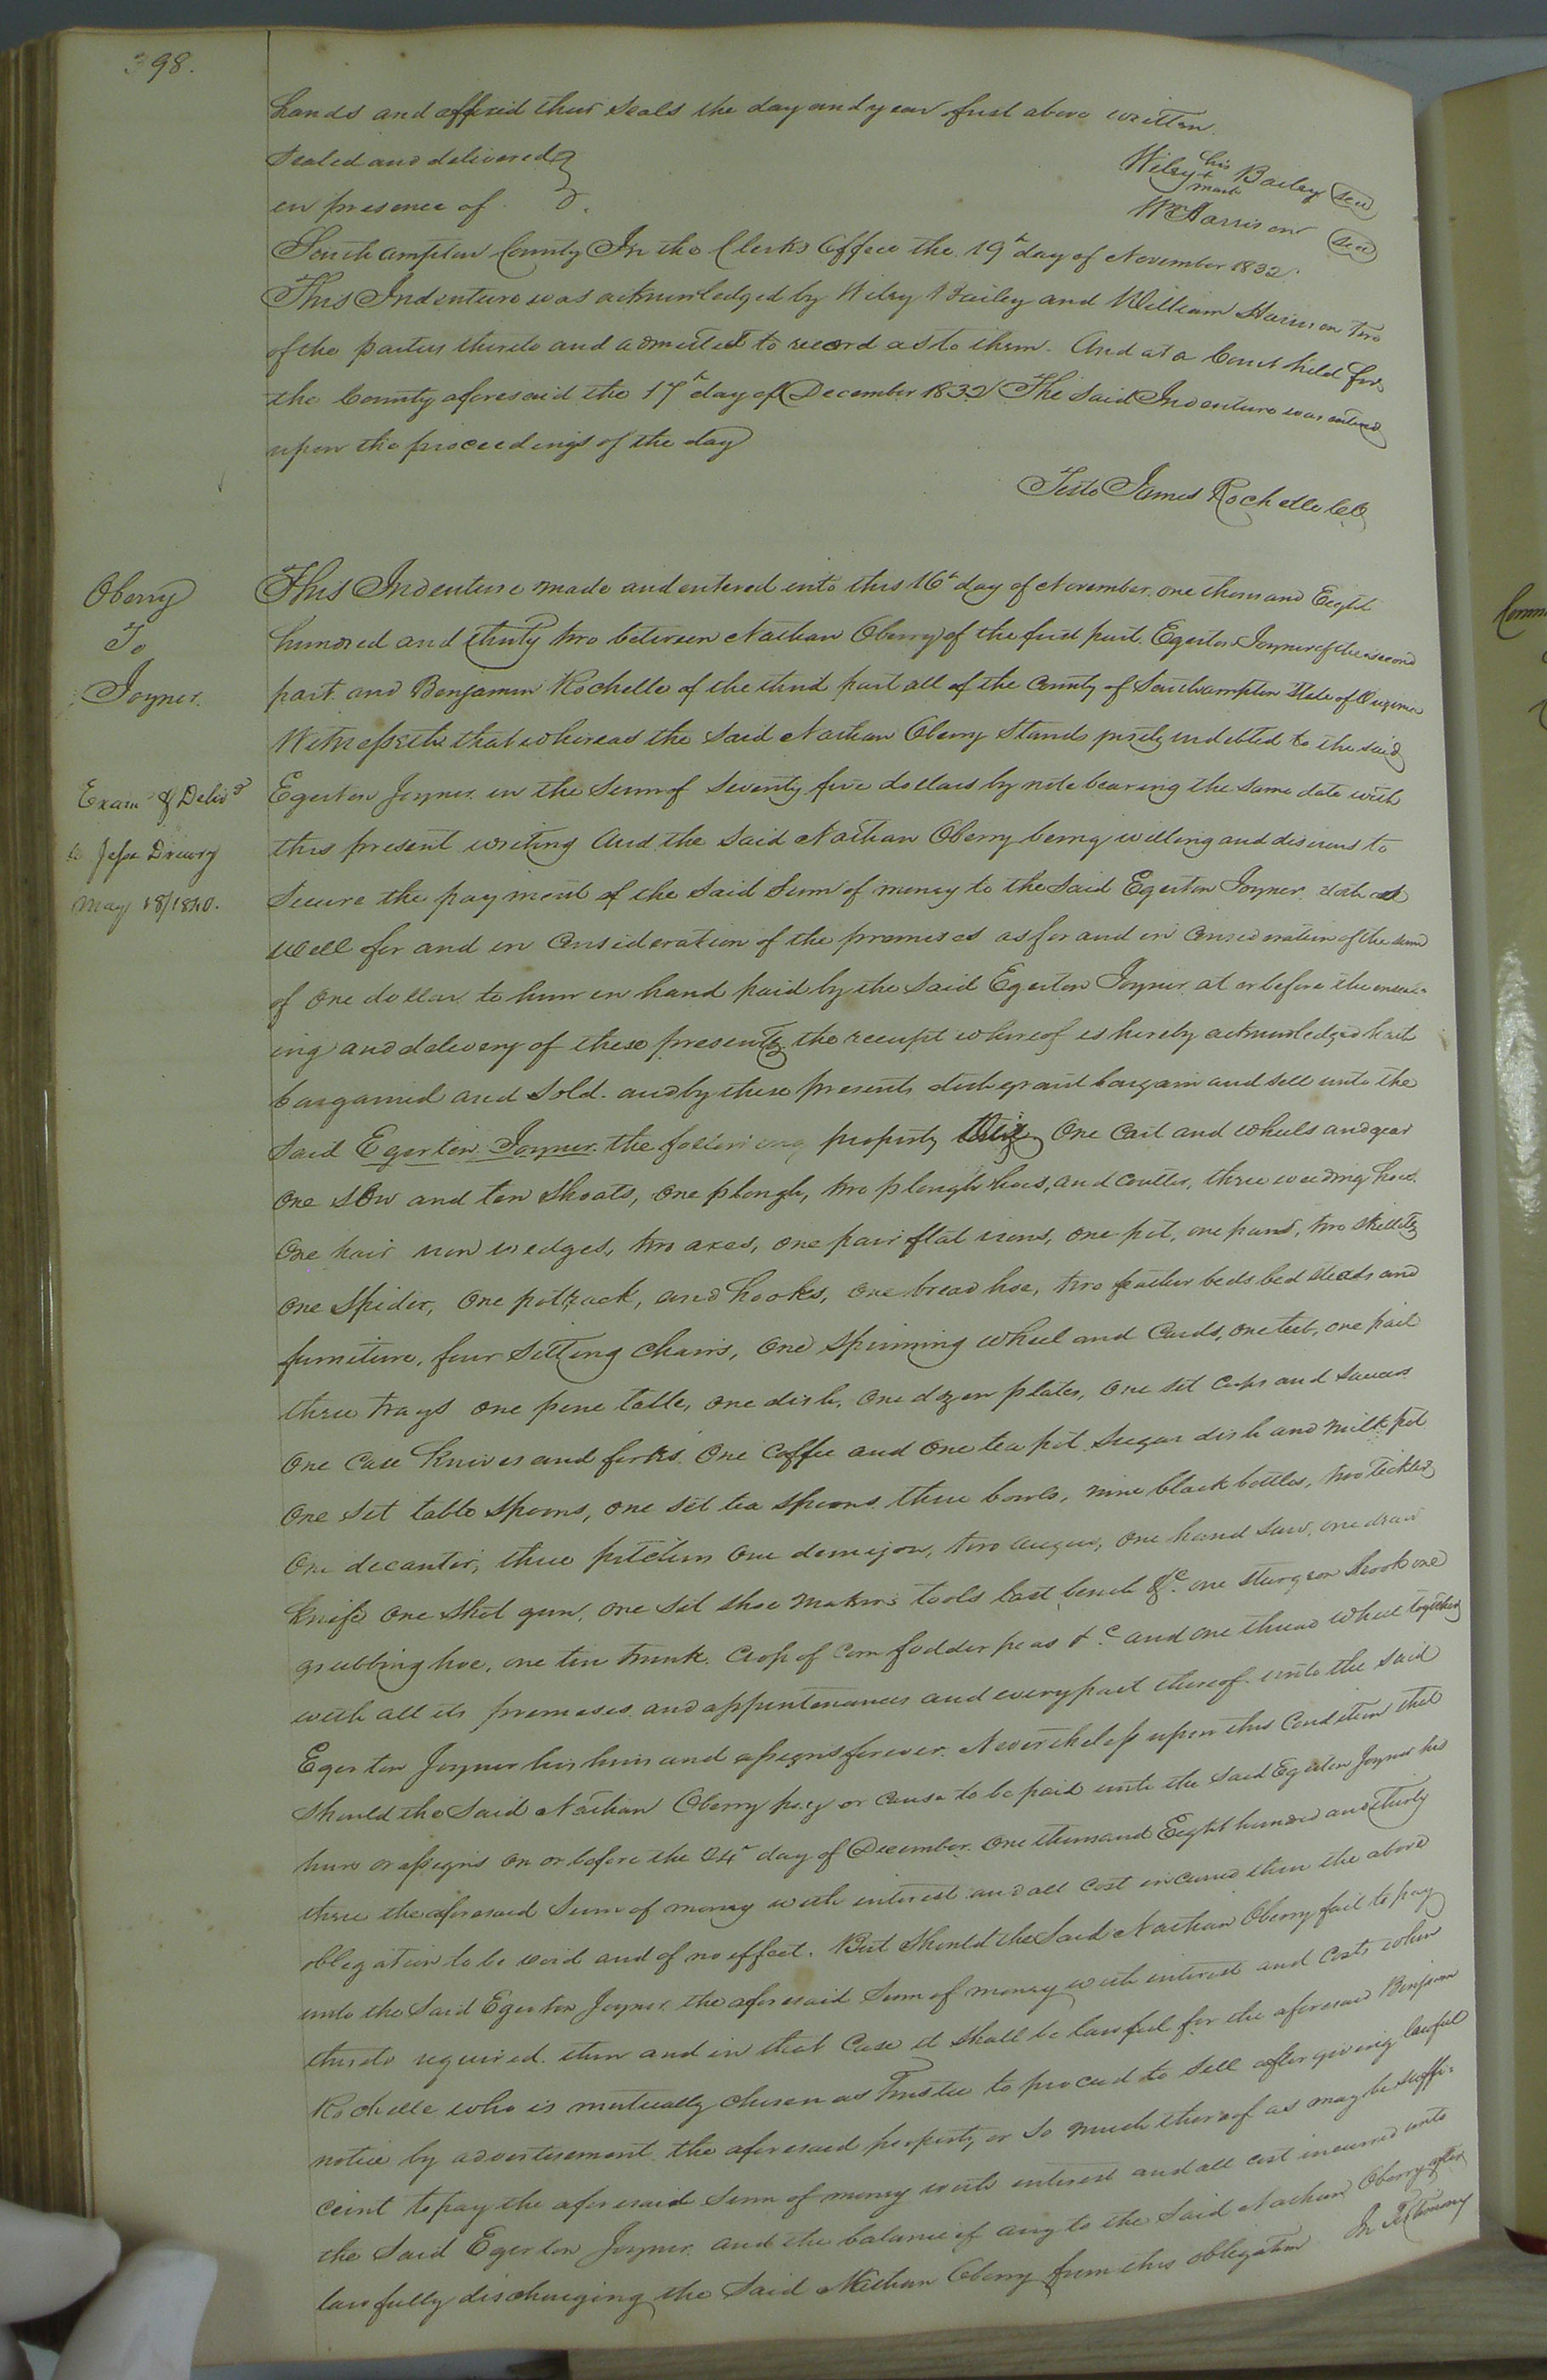 398.
hands and affixed their seals the day and year first above written.
Sealed and delivered
in presence of
Wiley his + mark Bailey Seal
Wm Harrison Seal
Southampton County In the Clerks Office the 19th day of November 1832.
This Indenture was acknowledged by Wiley Bailey and William Harrison two
of the parties thereto and admitted to record as to them. And at a Court held for
the County aforesaid the 17th day of December 1832 The said Indenture was entered
upon the proceedings of the day
Teste James Rochelle CC
Oberry
To
Joyner.
Exam'd & Deliv'd
to Jesse Drewry
May 18/1840.
This Indenture made and entered into this 16th day of November one thousand Eight
hundred and thirty two between Nathan Oberry of the first part. Egerton Joyner of the second
part and Benjamin Rochelle of the third part all of the County of Southampton State of Virginia
Witnesseth that whereas the said Nathan Oberry Stands justly indebted to the said
Egerton Joyner in the Sum of Seventy five dollars by note bearing the same date with
this present writing And the said Nathan Oberry being willing and desirous to
Secure the payment of the said Sum of money to the said Egerton Joyner. doth as
well for and in Consideration of the premises as for and in Consideration of the sum
of One dollar to him in hand paid by the said Egerton Joyner at or before the enseal-
ing and delivery of these presents the receipt whereof is hereby acknowledged hath
bargained and Sold. and by these presents doth grant bargain and sell unto the
said Egerton Joyner. the following property Viz One Cart and wheels and gear
one sow and ten Shoats, one plough, two plough hoes, and Coulter, three weeding hoes.
One pair iron wedges, two axes, one pair flat irons, one pot, one pan, two skillets
one Spider, One potrack, and hooks, one bread hoe, two feather beds bed steads and
furniture, four Sitting Chairs, One Spinning wheel and Cards, one tub, one pail
three trays one pine table, one dish, One dozen plates, One set Cups and Saucers
One Case Knives and forks. One Coffee and One tea pot Sugar dish and Milk pot
One set table Spoons, one set tea Spoons three bowls, nine black bottles, two ticklers
One decanter, three pitchers One demijon, two augers, One hand Saw, one draw
Knife One Shot gun, one set Shoe Makers tools last bench &c. one Sturgeon hook one
grubbing hoe, one tin trunk. Crop of Corn fodder peas &c. and one thread wheel together
with all its premises. and appurtenances and every part thereof. unto the said
Egerton Joyner his heirs and assigns forever. Nevertheless upon this Condition that
Should the said Nathan Oberry pay or Cause to be paid unto the said Egerton Joyner his
heirs or assigns on or before the 24th day of December. One thousand Eight hundred and thirty
three the aforesaid Sum of money with interest and all Cost incurred then the above
obligation to be void and of no effect. But Should the said Nathan Oberry fail to pay
unto the said Egerton Joyner the aforesaid Sum of money with interest and Costs when
thereto required. then and in that Case it Shall be lawful for the aforesaid Benjamin
Rochelle who is mutually chosen as Trustee to proceed to Sell after giving lawful
notice by advertisement. the aforesaid property or So much thereof as may be suffi-
cient to pay the aforesaid Sum of money with interest and all cost incurred unto
the Said Egerton Joyner. and the balance if any to the said Nathan Oberry after
lawfully discharging the said Nathan Oberry from this obligation In Testimony